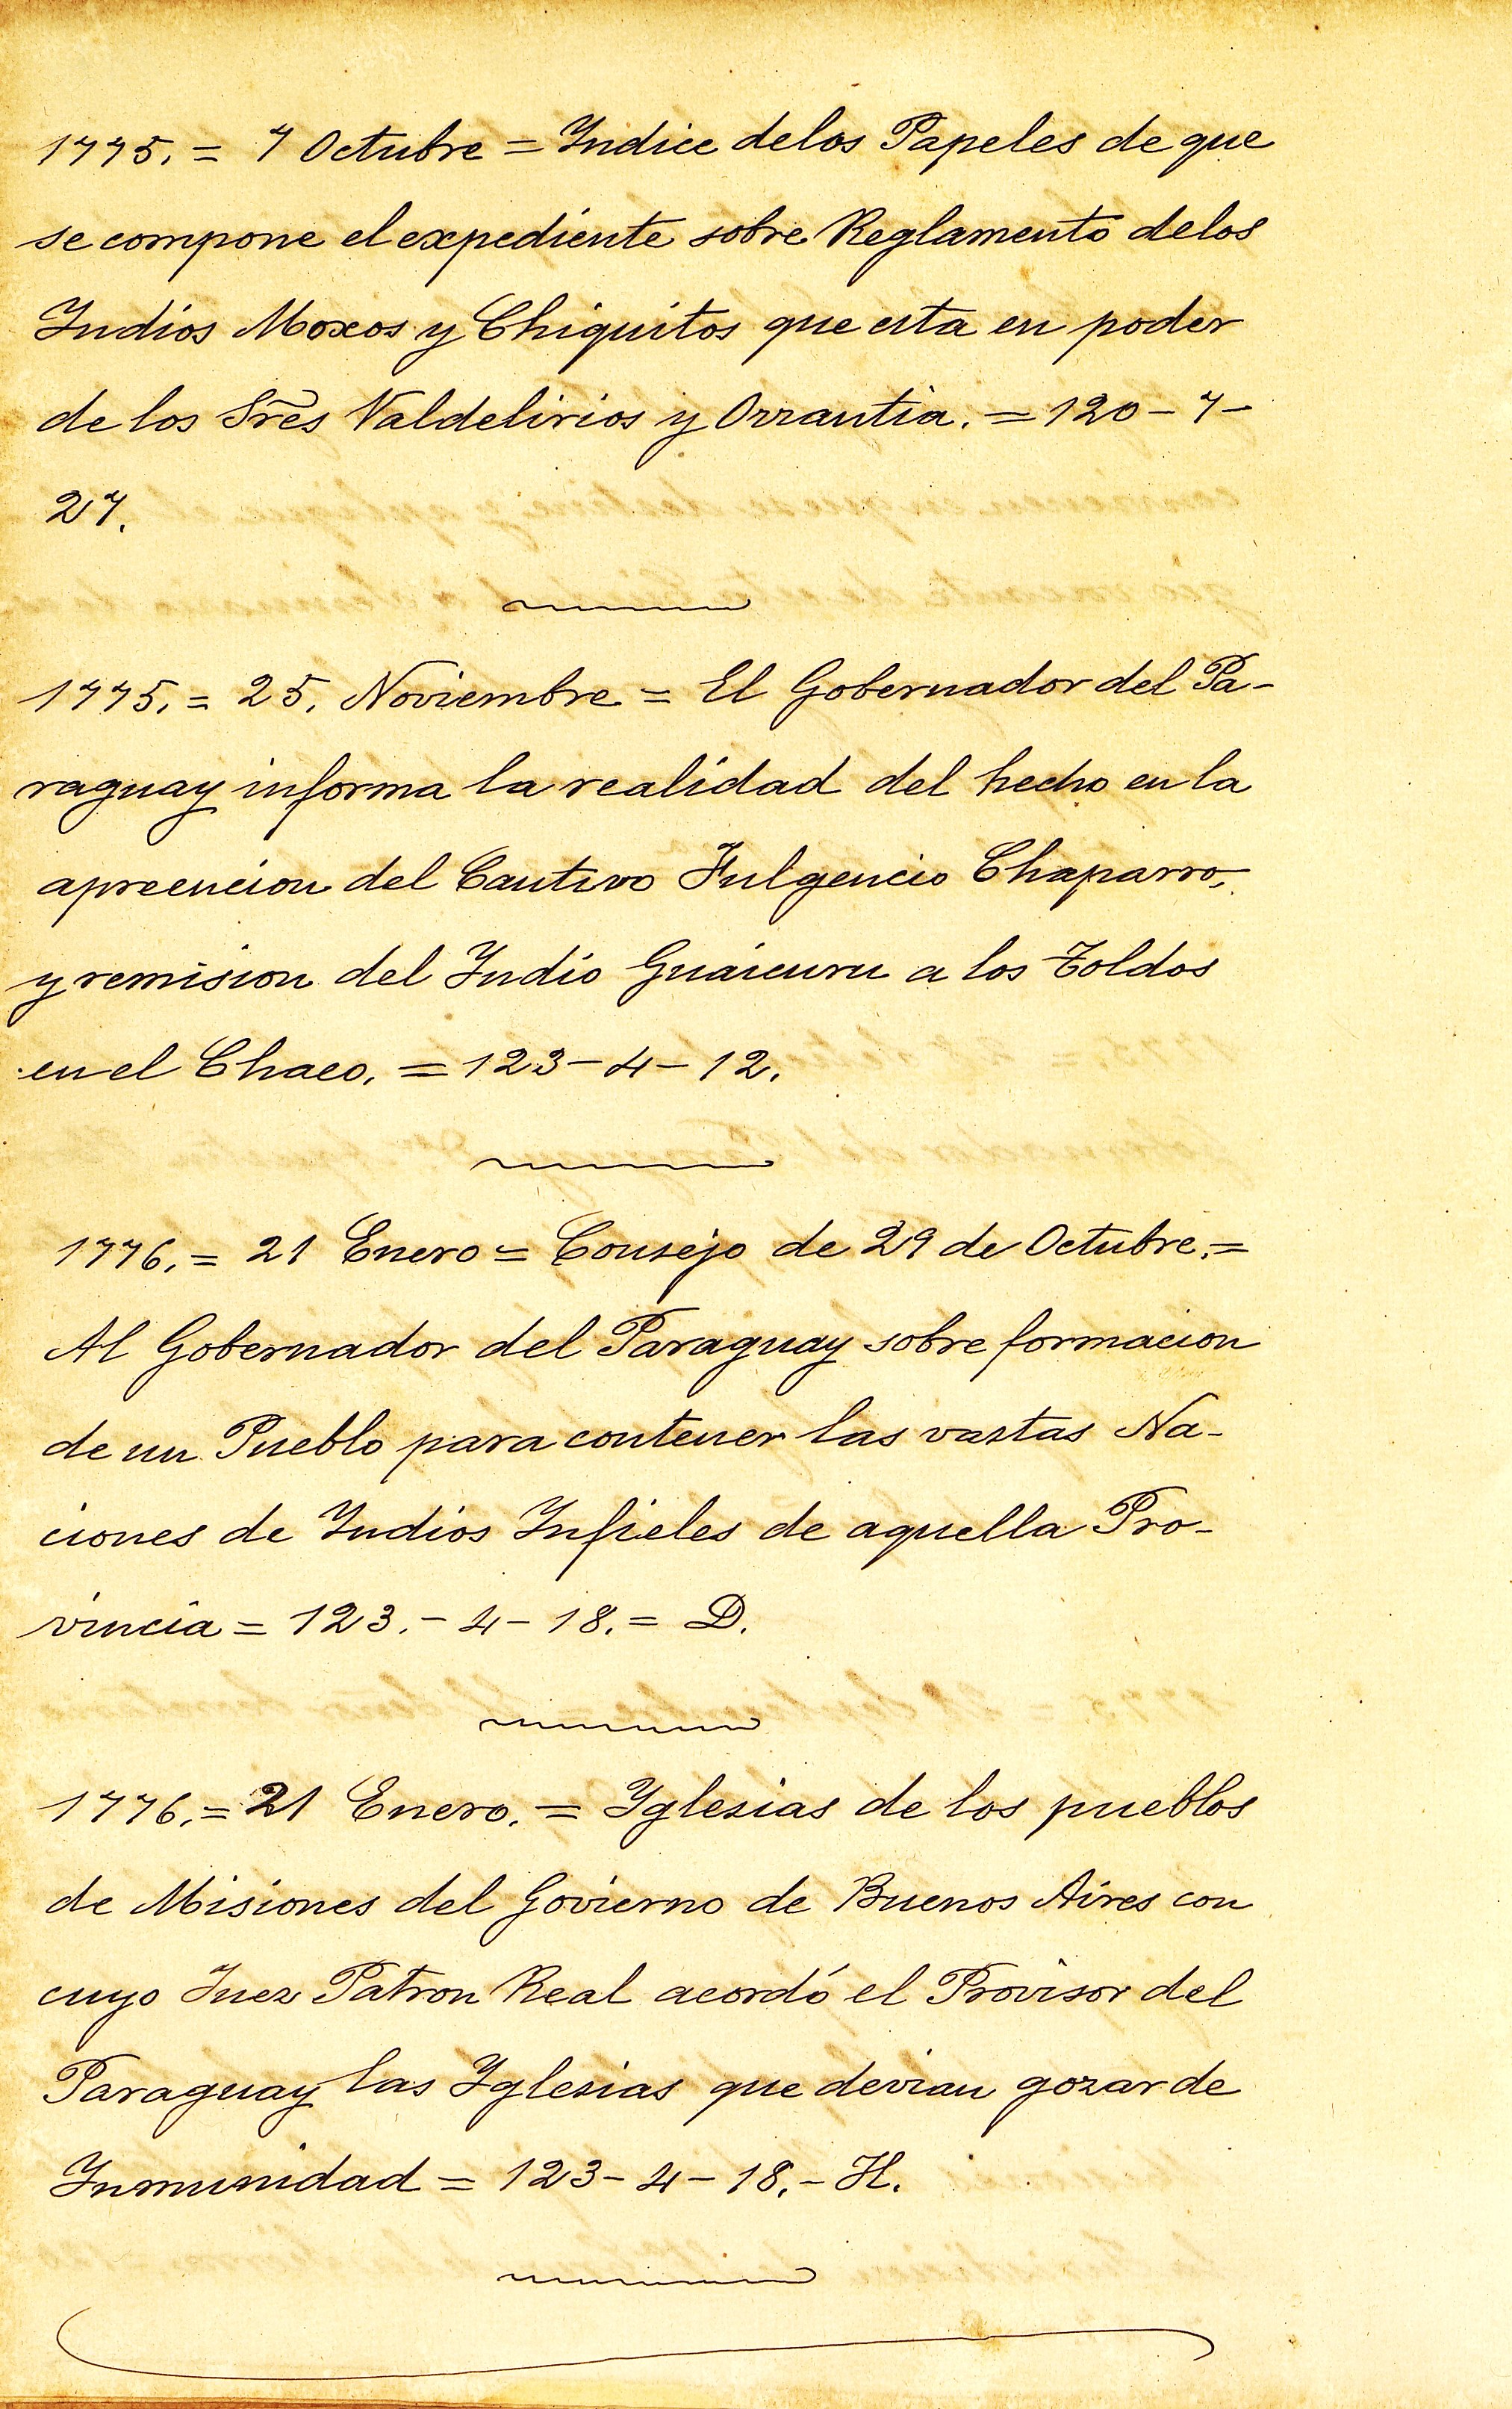 1775. = 7 Octubre = Yndice delos Papeles de que
se compone el expediente sobre Reglamento delos
Yndios Moxos y Chiquitos que esta en poder
de los Sr̃es Valdelirios y Orrantia. = 120 - 7 -
27.
1775. = 25. Noviembre = El Gobernador del Pa-
raguay informa la realidad del hecho en la
apreencion del Cautivo Fulgencio Chaparro,
y remision del Yndio Guaicuru a los Toldos
en el Chaco. = 123 - 4 - 12.
1776. = 21 Enero = Consejo de 29 de Octubre. =
Al Gobernador del Paraguay sobre formacion
de un Pueblo para contener las vastas Na-
ciones de Yndios Ynfieles de aquella Pro-
vincia = 123. - 4 - 18. = D.
1776. = 21 Enero. = Yglesias de los pueblos
de Misiones del Govierno de Buenos Aires con
cuyo Juez Patron Real acordó el Provisor del
Paraguay las Yglesias que devian gozar de
Ynmunidad = 123 - 4 - 18. - H.